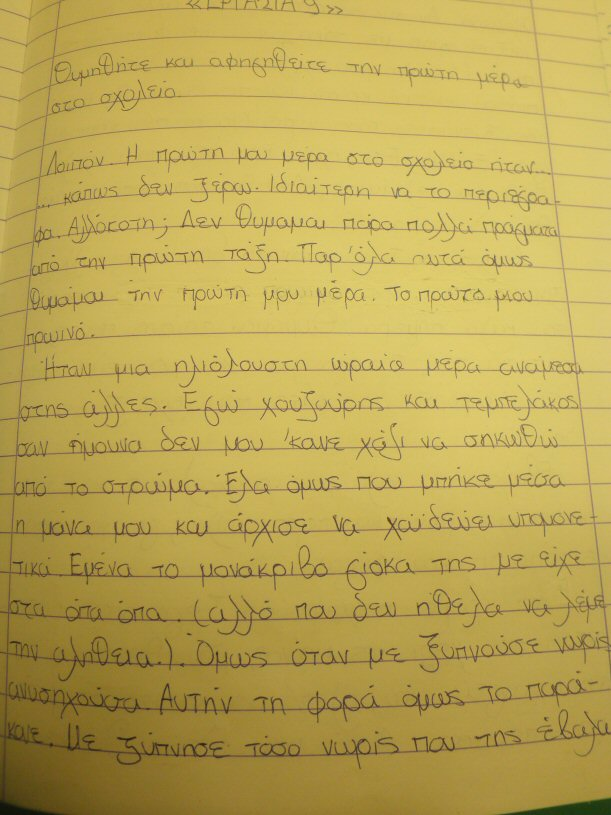 «ΕΡΓΑΣΙΑ 9»
Θυμηθήτε και αφηγηθείτε την πρώτη μέρα
στο σχολείο.
Λοιπόν. Η πρώτη μου μερα στο σχολείο ήταν...
... κάπως δεν ξέρω. Ιδιαίτερη να το περιέγρα-
φα. Αλλόκοτη; Δεν θυμαμαι πάρα πολλά πράγματα
από την πρώτη τάξη. Παρ'όλα αυτά όμως
θυμάμαι την πρώτη μου μέρα. Το πρώτο μου
πρωινό.
Ήταν μια ηλιόλουστη ωραία μερα αναμεσα
στης άλλες. Εγώ χουζούρης και τεμπελάκος
σαν ήμουνα δεν μου 'κανε χάζι να σηκωθώ
από το στρώμα. Έλα όμως που μπήκε μέσα
η μάνα μου και άρχισε να χαϊδευει υπομονε-
τικά. Εμένα το μονάκριβο γιόκα της με είχε
στα όπα όπα. (αλλό που δεν ήθελα να λέμε
την αλήθεια.). Όμως όταν με ξυπνούσε νωρίς
ανυσηχούσα. Αυτήν τη φορά όμως το παρά-
κανε. Με ξύπνησε τόσο νωρίς που της έβαλα